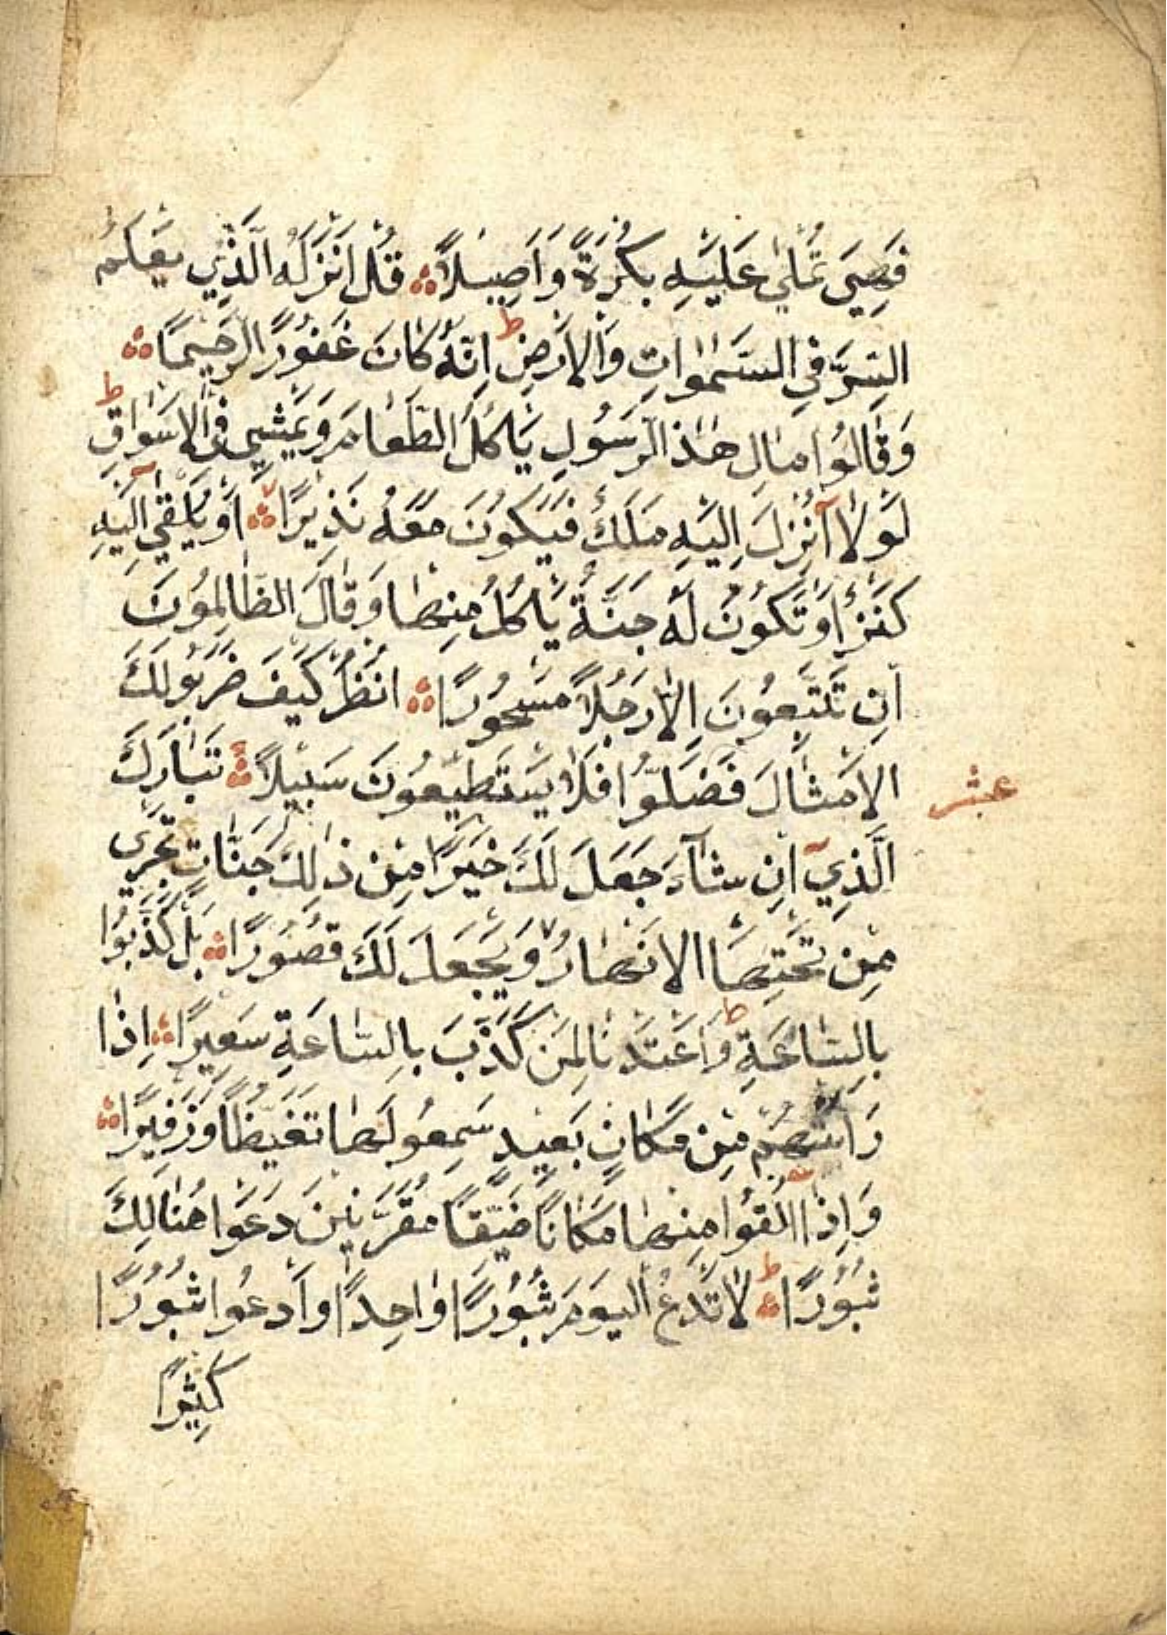 فَهِيَ تُمْلٰى عَلَيْهِ بُكْرَةً وَاَصِيلاً قُلْ اَنْزَلَهُ الَّذِي يَعْلَمُ
السِّرَّ فِي السَّمٰوَاتِ وَالْاَرْضِ ط اِنَّهُ كَانَ غَفُورًا رَحِيمًا
وَقَالُوا مَالِ هٰذَا الرَّسُولِ يَاْكُلُ الطَّعَامَ وَيَمْشِي فِي الْاَسْوَاقِ ط
لَوْلَا اُنْزِلَ اِلَيْهِ مَلَكٌ فَيَكُونَ مَعَهُ نَذِيرًا اَوْ يُلْقٰى اِلَيْهِ
كَنْزٌ اَوْ تَكُونُ لَهُ جَنَّةٌ يَاْكُلُ مِنْهَا وَقَالَ الظَّالِمُونَ
اِنْ تَتَّبِعُونَ اِلَّا رَجُلاً مَسْحُورًا انْظُرْ كَيْفَ ضَرَبُوا لَكَ
الْاَمْثَالَ فَضَلُّوا فَلَا يَسْتَطِيعُونَ سَبِيلاً تَبَارَكَ
عشر
الَّذِي اِنْ شَاءَ جَعَلَ لَكَ خَيْرًا مِنْ ذٰلِكَ جَنَّاتٍ تَجْرِي
مِنْ تَحْتِهَا الْاَنْهَارُ وَيَجْعَلْ لَكَ قُصُورًا بَلْ كَذَّبُوا
بِالسَّاعَةِ ط وَاَعْتَدْنَا لِمَنْ كَذَّبَ بِالسَّاعَةِ سَعِيرًا اِذَا
رَاَتْهُمْ مِنْ مَكَانٍ بَعِيدٍ سَمِعُوا لَهَا تَغَيُّظًا وَزَفِيرًا
وَاِذَا اُلْقُوا مِنْهَا مَكَانًا ضَيِّقًا مُقَرَّنِينَ دَعَوْا هُنَالِكَ
ثُبُورًا ط لَا تَدْعُ الْيَوْمَ ثُبُورًا وَاحِدًا وَادْعُوا ثُبُورًا
كَثِيرًا